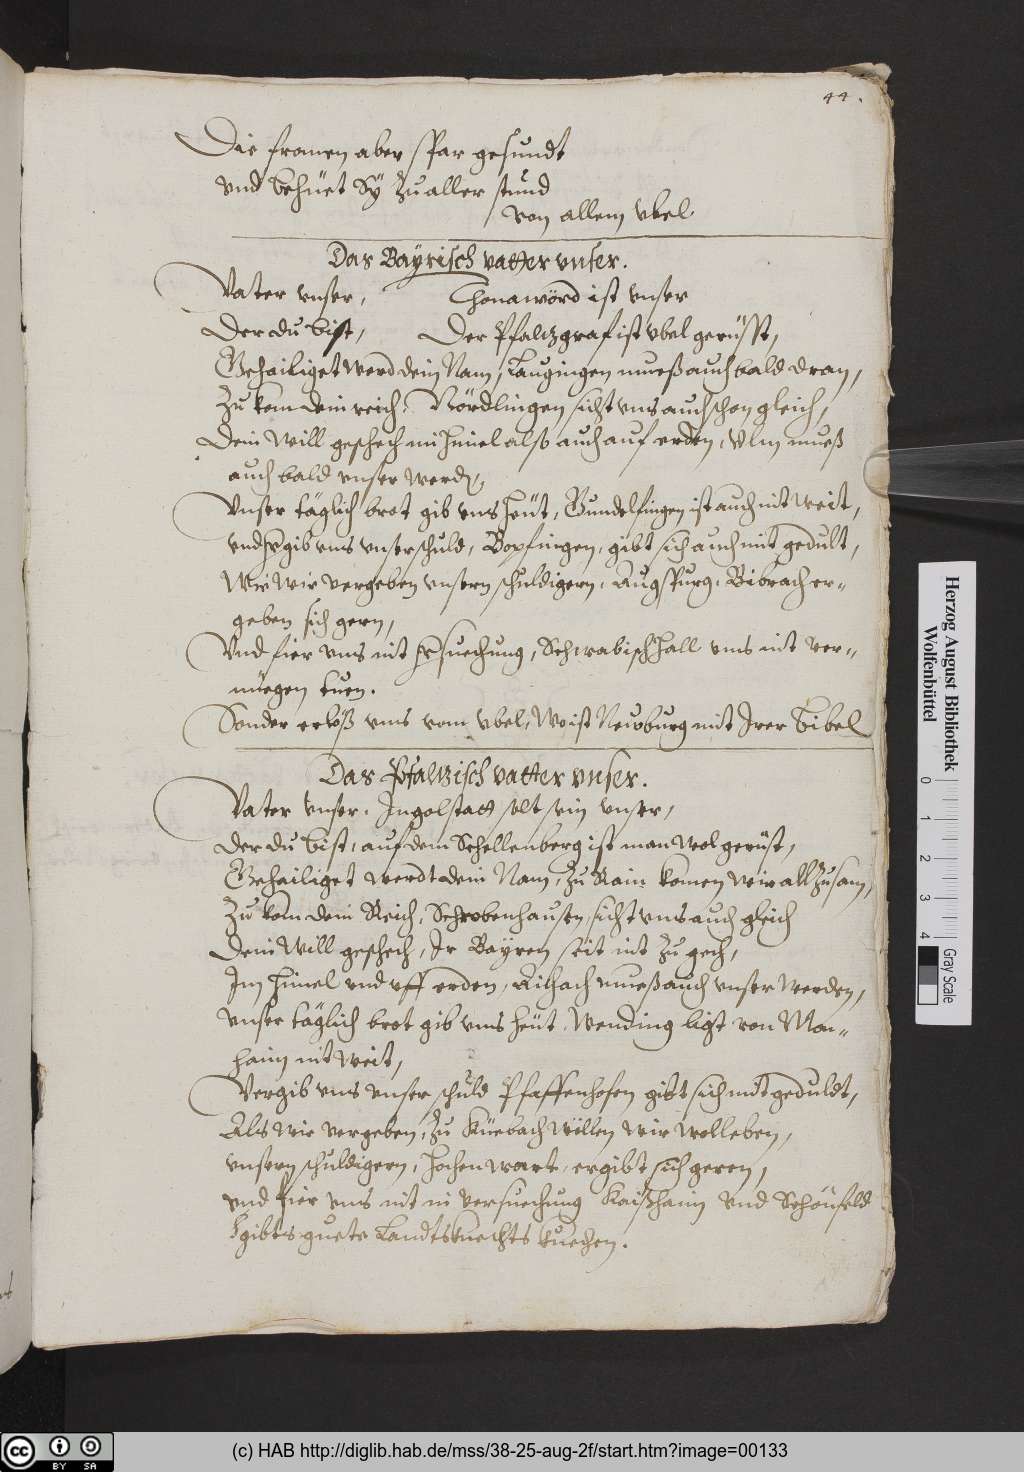 44.
Die fromen aber spar gesundt
vnd behüet Sÿ Zu aller stund
von allem vbel
Das Bayrisch vatter vnser.
Vater vnser, Thonawörd ist vnser
Der du bist, Der Pfaltzgraf ist vbel gerüsst,
Gehailiget werd dein Nam, Laugingen mueß auch bald dran,
Zu kom dein reich, Nördlingen sicht vns auch schon gleich,
Dein will geschech im himel alß auch auf erden, Vlm mueß
auch bald vnser werdn,
Vnser täglich brot gib vns heüt, Gundelfingen ist auch nit weit,
vnd vergib vns vnser schuld, Bopfingen, gibt sich auch mit gedult,
Wie wir vergeben vnsern schuldigern, Augspurg, Bibrach er-
geben sich gern,
Vnd fier vns nit versuechung, Schwabisch Hall vns nit ver-
müegen tuen.
Sonder erlöß vns vom vbel, Wo ist Neuburg mit Irer bibel
Das Pfaltzisch vatter vnser.
Vater vnser, Ingolstatt solt sein vnser,
Der du bist, auf dem Schellenberg ist man wol gerüst,
Gehailiget werdt dein Nam, Zu Rain komen wir all Zusam,
Zu kom dein Reich, Schrobenhausen sicht vns auch gleich
Dein will geschech, Ir Bayren seit nit Zu gech,
Im himel vnd vff erden, Aichach mueß auch vnser werden,
Vnser täglich brot gib vns heüt, Wending ligt von Man-
haim nit weit,
Vergib vns vnser schuld Pfaffenhofen gibt sich mit geduldt,
Als wir vergeben, Zu Küebach wöllen wir wolleben,
vnsern schuldigern, Hochenwart, ergibt sich geren,
vnd fier vns nit in versuechung Kaißhaim vnd Schönfeld
gibts guete Landtsknechts kuechen.
Herzog August Bibliothek
Wolfenbüttel
0 1 2 3 4
Gray Scale
cc BY SA
(c) HAB http://diglib.hab.de/mss/38-25-aug-2f/start.htm?image=00133